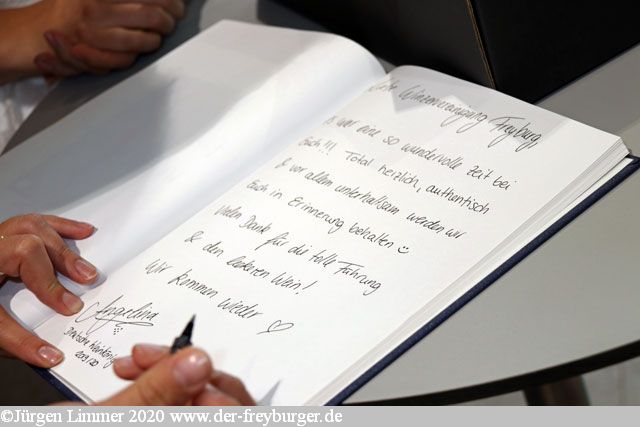 Liebe Winzervereinigung Freyburg,
Es war eine so wundervolle Zeit bei
Euch!!! Total herzlich, authentisch
& vor allem unterhaltsam werden wir
Euch in Erinnerung behalten ☺
Vielen Dank für die tolle Führung
& den leckeren Wein!
Wir kommen wieder ♡
Angelina
Deutsche Weinkönigin
2019/20
©Jürgen Limmer 2020 www.der-freyburger.de